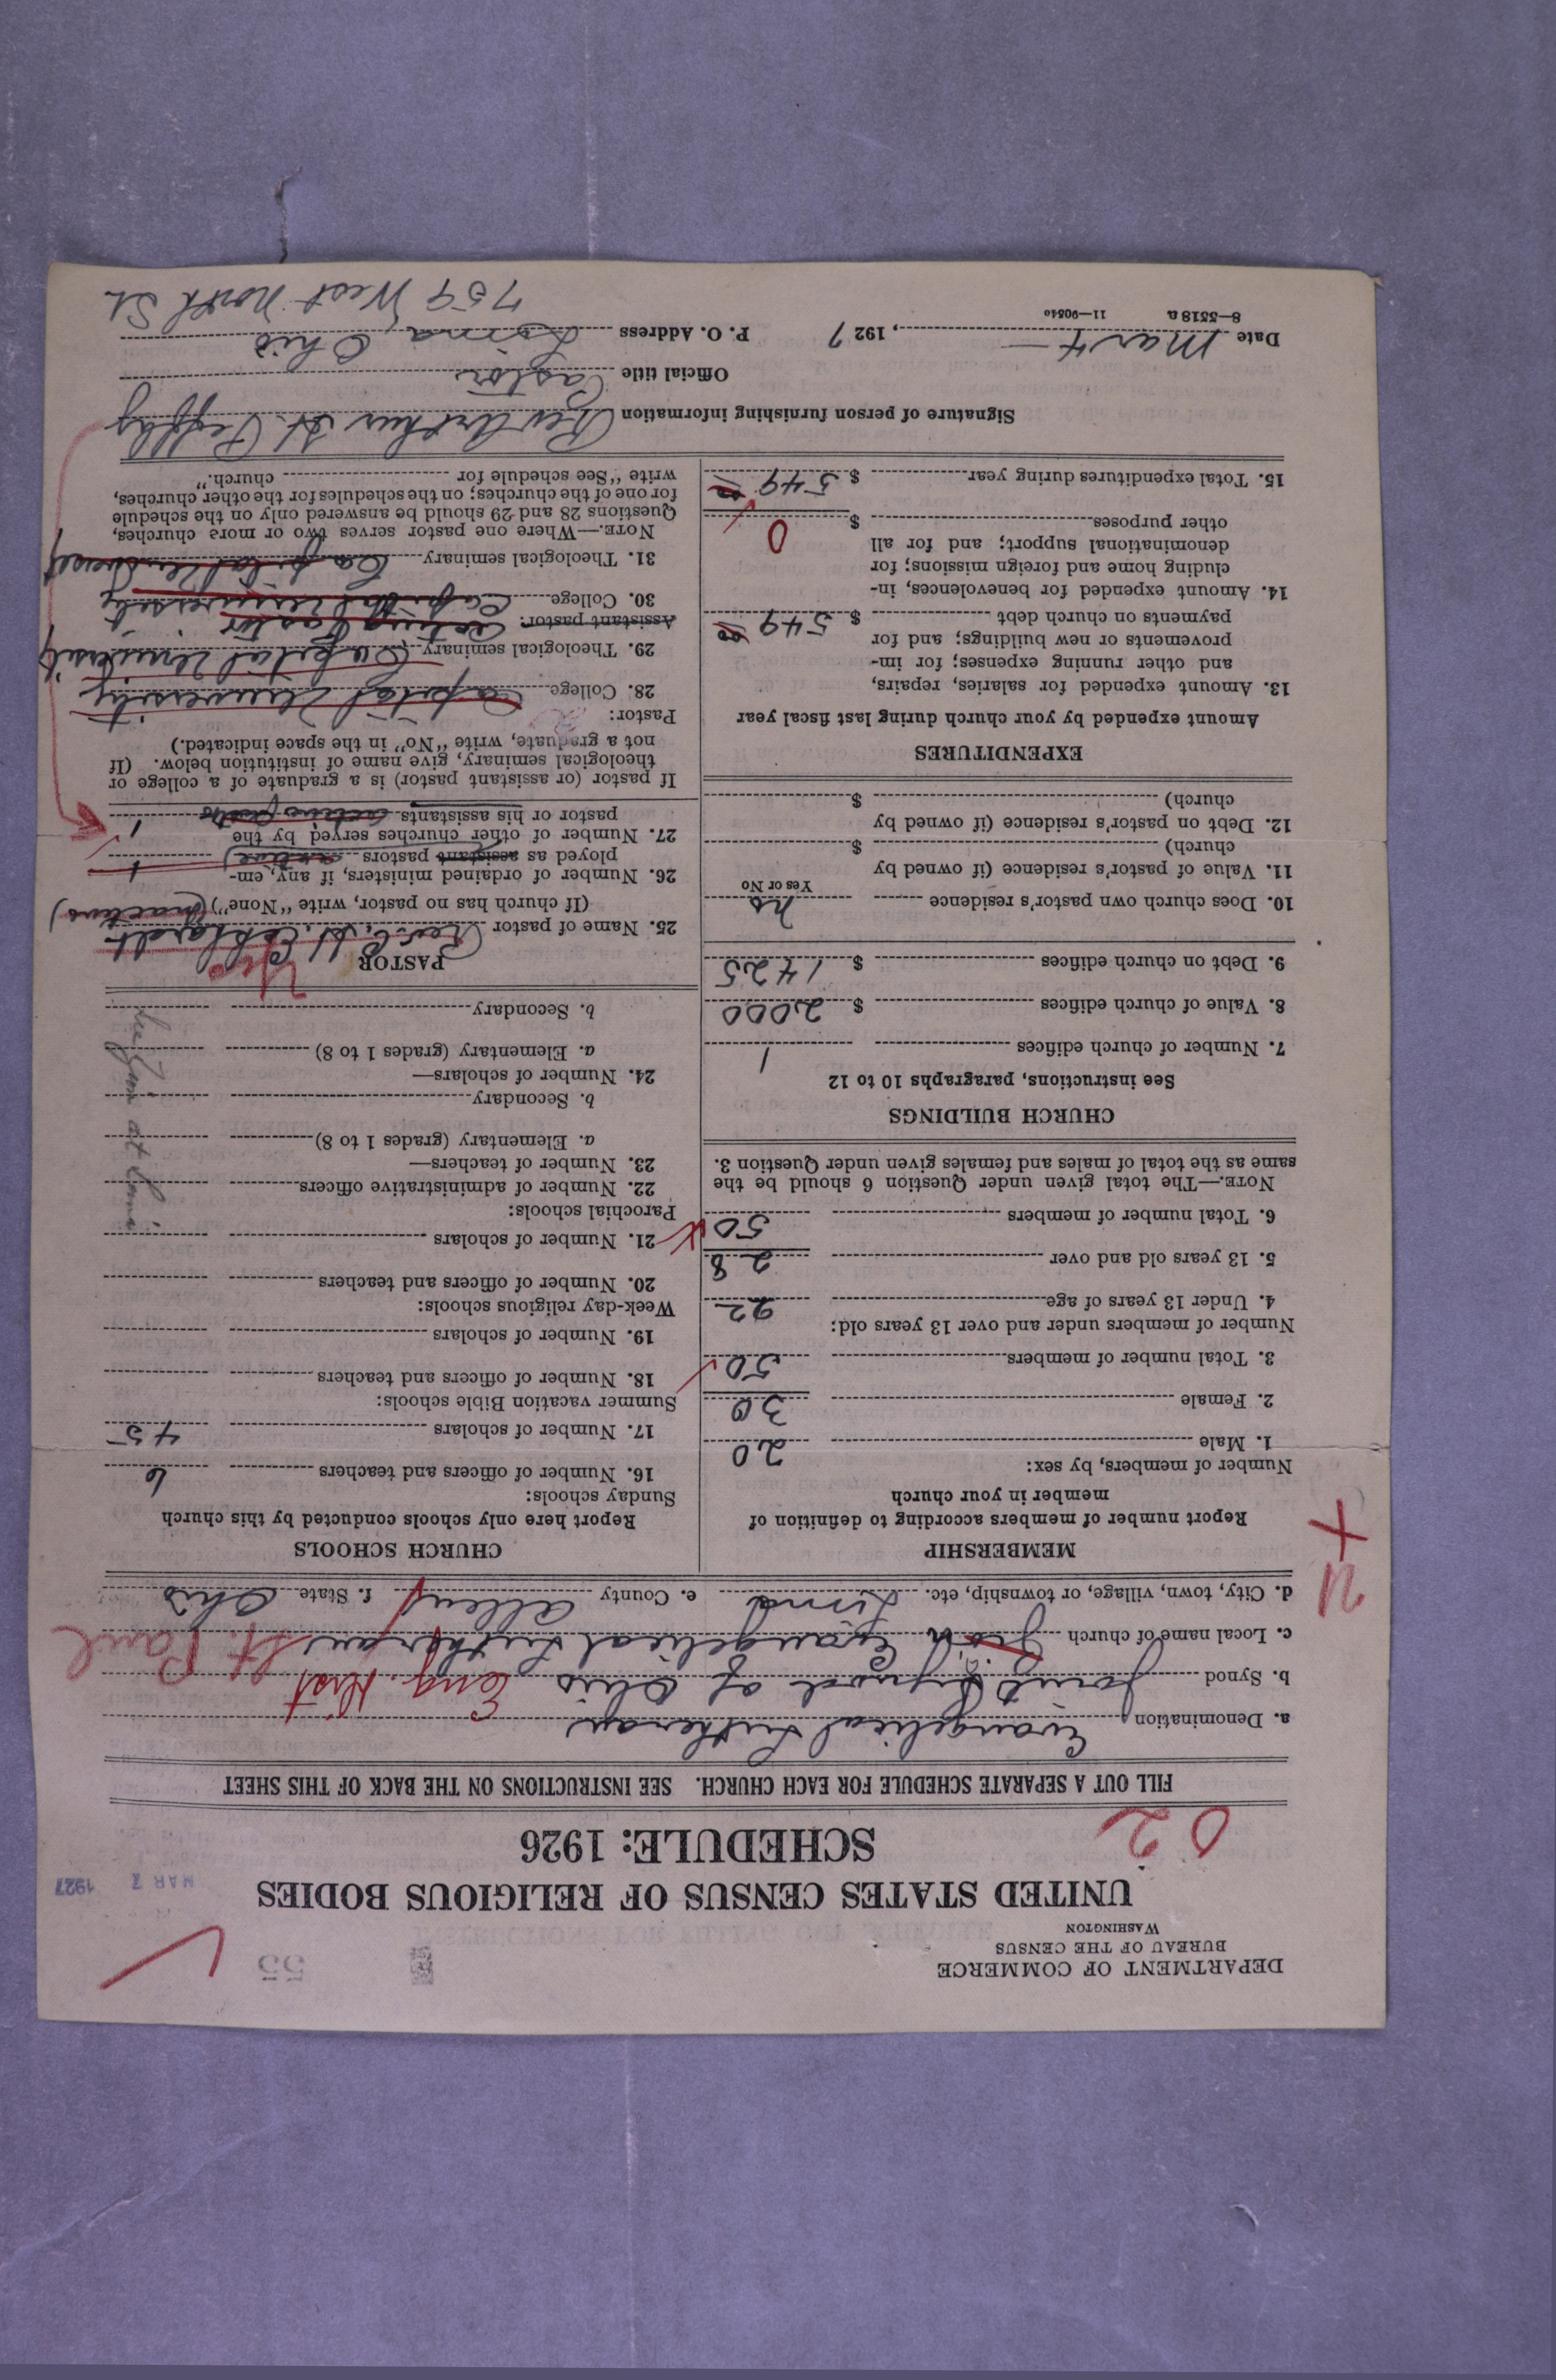 DEPARTMENT OF COMMERCE
BUREAU OF THE CENSUS
WASHINGTON
55
MAR 7 1927
UNITED STATES CENSUS OF RELIGIOUS BODIES
SCHEDULE: 1926
02
FILL OUT A SEPARATE SCHEDULE FOR EACH CHURCH. SEE INSTRUCTIONS ON THE BACK OF THIS SHEET
a. Denomination Evangelical Lutheran
b. Synod Joint Synod of Ohio Eng. Dist
c. Local name of church Evangelical Lutheran St. Paul
d. City, town, village, or township, etc. Lima e. County Allen f. State Ohio
MEMBERSHIP
Report number of members according to definition of
member in your church
Number of members, by sex:
1. Male 20
2. Female 30
3. Total number of members 50
Number of members under and over 13 years old:
4. Under 13 years of age 22
5. 13 years old and over 28
6. Total number of members 50
NOTE.—The total given under Question 6 should be the
same as the total of males and females given under Question 3.
CHURCH BUILDINGS
See instructions, paragraphs 10 to 12
7. Number of church edifices 1
8. Value of church edifices $ 2000
9. Debt on church edifices $ 1425
10. Does church own pastor's residence no
Yes or No
11. Value of pastor's residence (if owned by
church) $
12. Debt on pastor's residence (if owned by
church) $
EXPENDITURES
Amount expended by your church during last fiscal year
13. Amount expended for salaries, repairs,
and other running expenses; for im-
provements or new buildings; and for
payments on church debt $ 549
14. Amount expended for benevolences, in-
cluding home and foreign missions; for
denominational support; and for all
other purposes $ 0
15. Total expenditures during year $ 549
CHURCH SCHOOLS
Report here only schools conducted by this church
Sunday schools:
16. Number of officers and teachers 6
17. Number of scholars 45
Summer vacation Bible schools:
18. Number of officers and teachers
19. Number of scholars
Week-day religious schools:
20. Number of officers and teachers
21. Number of scholars
Parochial schools:
22. Number of administrative officers
23. Number of teachers—
a. Elementary (grades 1 to 8)
b. Secondary
24. Number of scholars—
a. Elementary (grades 1 to 8)
b. Secondary
PASTOR
25. Name of pastor Rev. C. H. Eckhardt
(If church has no pastor, write "None") (inactive)
26. Number of ordained ministers, if any, em-
ployed as assistant pastors (active) 1
27. Number of other churches served by the
pastor or his assistants acting pastor 1
If pastor (or assistant pastor) is a graduate of a college or
theological seminary, give name of institution below. (If
not a graduate, write "No" in the space indicated.)
Pastor:
28. College Capital University
29. Theological seminary Capital University
Assistant pastor: Acting Pastor
30. College Capital University
31. Theological seminary Capital University
NOTE.—Where one pastor serves two or more churches,
Questions 28 and 29 should be answered only on the schedule
for one of the churches; on the schedules for the other churches,
write "See schedule for church."
Signature of person furnishing information Rev Arthur H. Peffley
Official title Pastor
Date Mar 4, 1927 P. O. Address Lima, Ohio
8—5518 a 11—90540
759 West North St